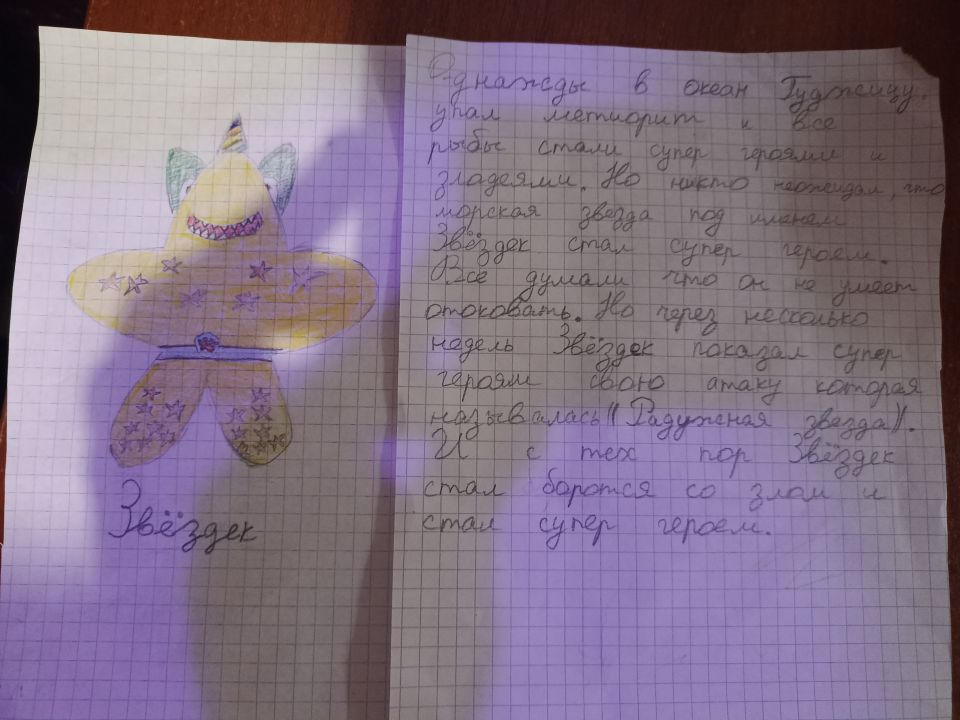 Звёздек
Однажды в океан Гуджитцу.
упал метиорит и все
рыбы стали супер героями и
зладеями. Но никто неожидал, что
морская звезда под именем
Звёздек стал супер героем.
Все думали что он не умеет
отоковать. Но через несколько
недель Звёздек показал супер
героям свою атаку которая
называлась "Радужная звезда".
И с тех пор Звёздек
стал боротся со злом и
стал супер героем.